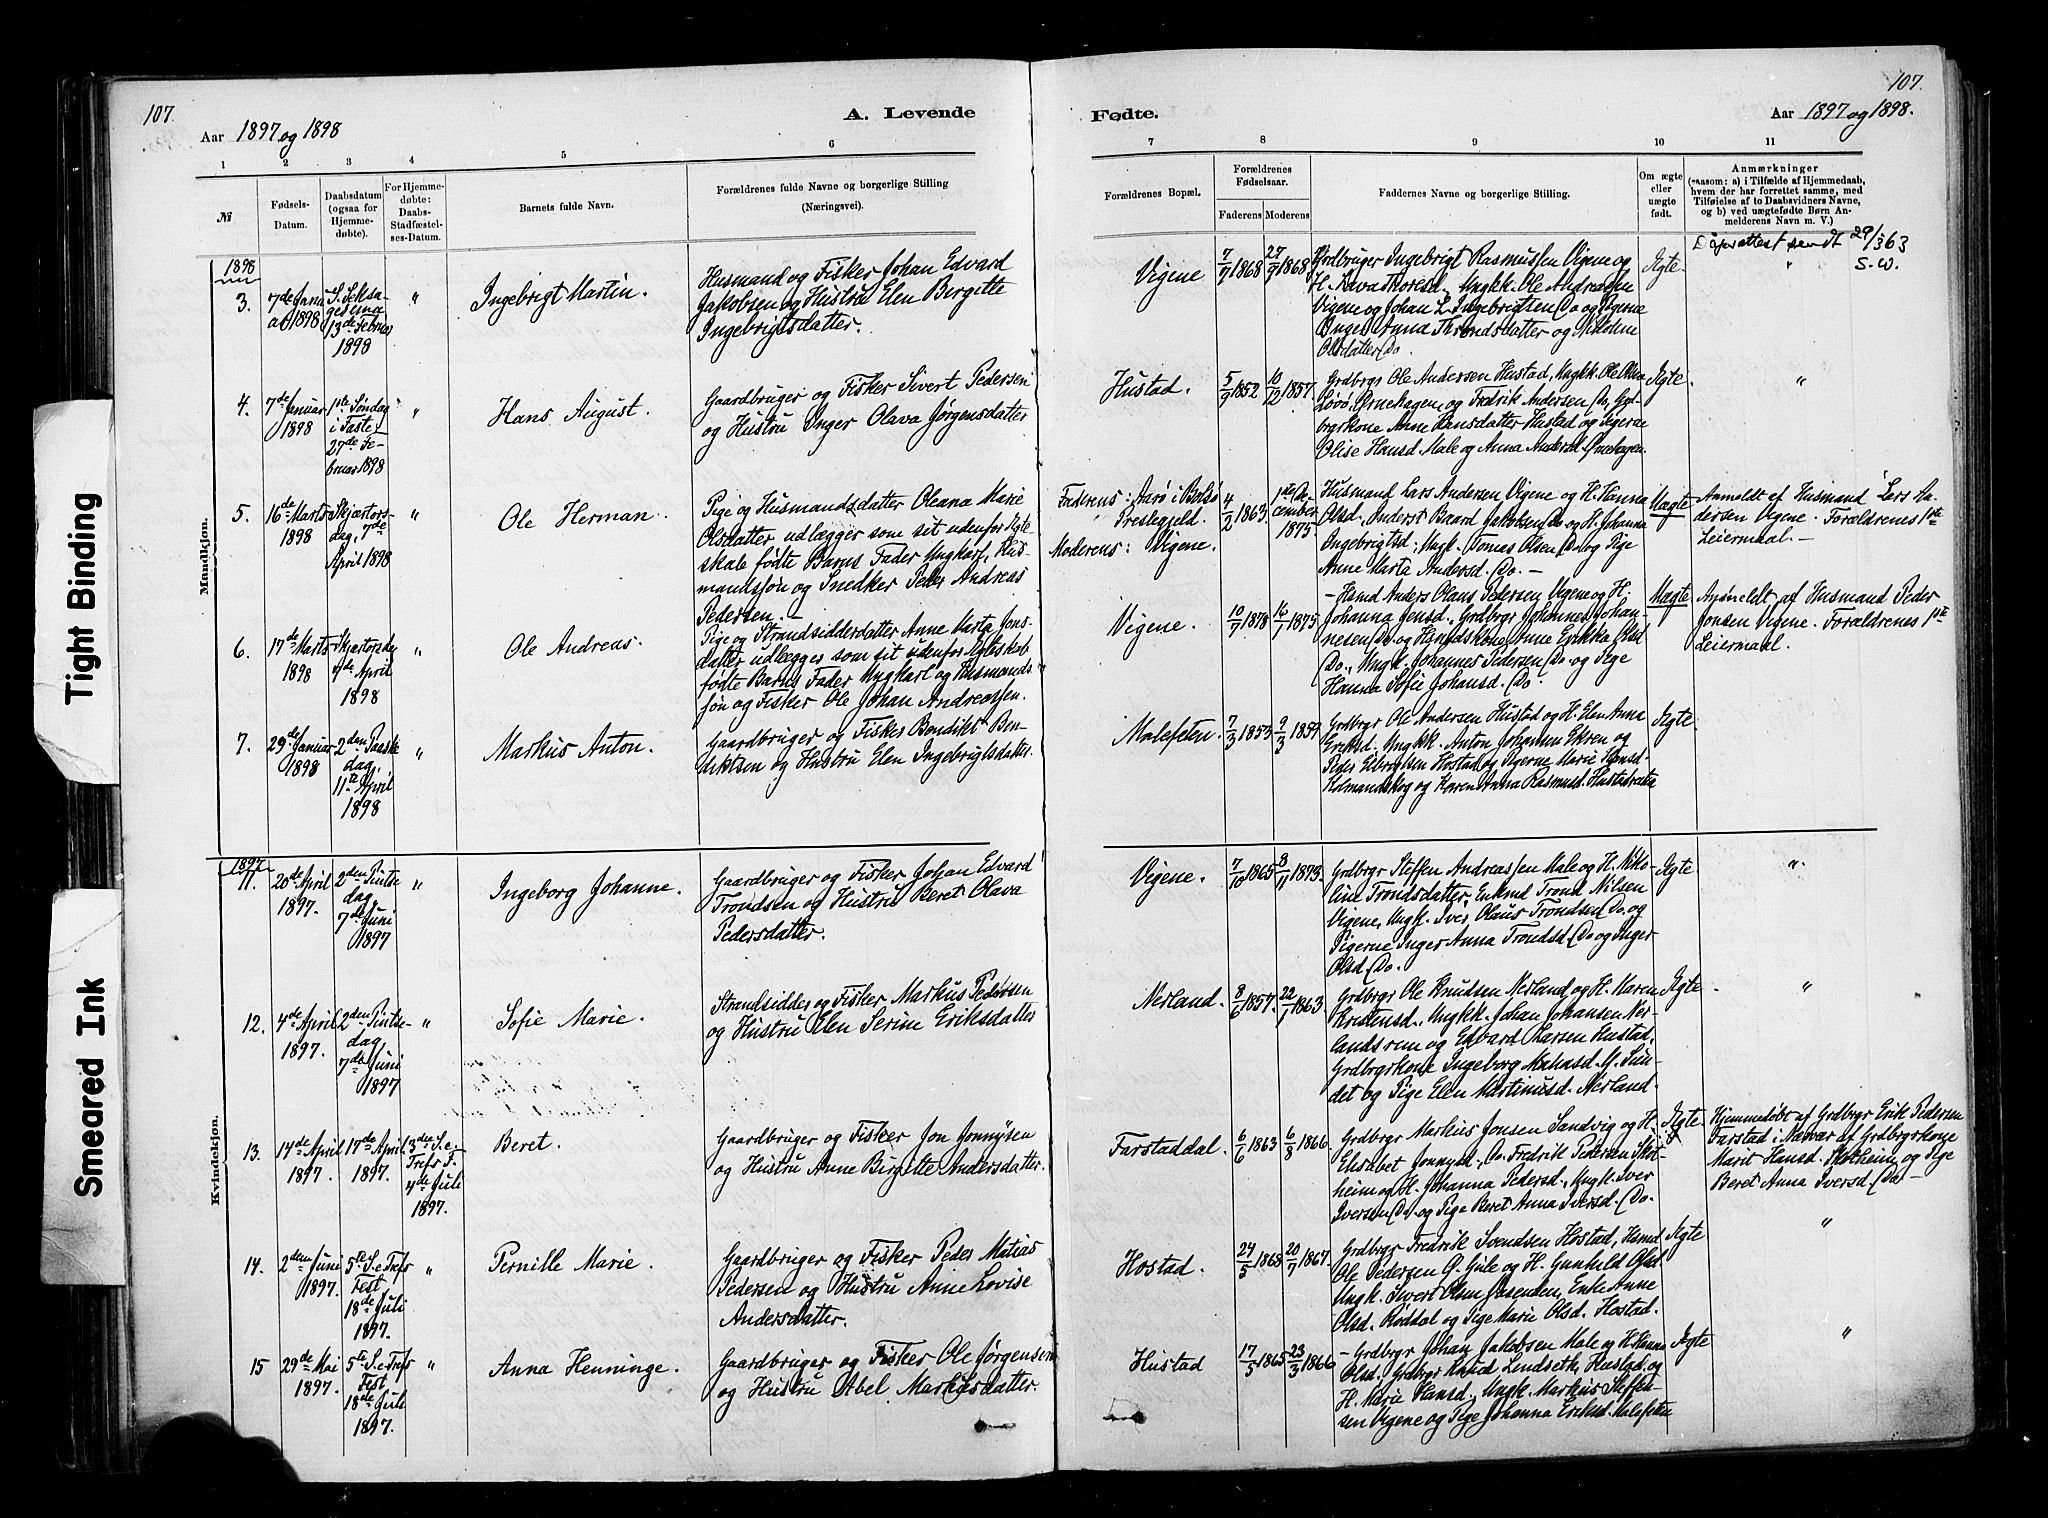 107.
107.
Aar 1897 og 1898
A. Levende
Fødte.
Aar 1897 og 1898.
1 2 3 4 5 6
7 8 9 10 11
№
Fødsels-
Datum.
Daabsdatum
(ogsaa for
Hjemme-
døbte).
For Hjemme-
døbte:
Daabs-
Stadfæstel-
ses-Datum.
Barnets fulde Navn.
Forældrenes fulde Navne og borgerlige Stilling
(Næringsvei).
Forældrenes Bopæl.
Forældrenes
Fødselsaar.
Faderens Moderens
Faddernes Navne og borgerlige Stilling.
Om ægte
eller
uægte
født.
Anmærkninger
(saasom: a) i Tilfælde af Hjemmedaab,
hvem der har forrettet samme, med
Tilføielse af to Daabsvidners Navne,
og b) ved uægtefødte Børn An-
melderens Navn m. V.)
Mandkjøn.
1898
3.
7de Janu
ar 1898
S. Seksa-
gesima
13de Februar
1898
"
Ingebrigt Martin.
Husmand og Fisker Johan Edvard
Jakobsen og Hustru Elen Birgitte
Ingebrigtsdatter.
Vigene
7/9 1868
27/9 1868
Grdbruger Ingebrigt Rasmussen Vigene og
H. Thoresd., Ungkk. Ole Andreasen
Vigene og Johan L. Ingebrigtsen Do og Pigerne
Inger Anna Throndsdatter og
Olsdatter Do.
Ægte.
Daapsattest sendt 29/3 63
S.W.
4.
7de Januar
1898
1ste Søndag
i Faste
27de Fe-
bruar 1898
"
Hans August.
Gaardbruger og Fisker Sivert Pedersen
og Hustru Inger Olava Jørgensdatter
Hustad.
5/9 1852
10/12 1857
Grdbrgr Ole Andersen Hustad, Ungkk. Ole Olsen
Løvø, Ørnehagen og Fredrik Andersen Do, Grd-
brgrkone Anne Hansdatter Hustad og Pigerne
Olise Hansd. Male og Anna Andersd. Ørnehagen.
Ægte.
"
5.
16de Marts
1898
Skjærtors-
dag, 7de
April 1898
"
Ole Herman.
Pige og Husmandsdatter Oleana Marie
Olsdatter udlægger som sit udenfor Ægte-
skab fødte Barns Fader Ungkarl, Hus-
mandssøn og Snedker Peder Andreas
Pedersen.
Faderens: Aarø i Bolsø
Prestegjeld.
Moderens: Vigene.
4/2 1863
1ste De-
cember
1875
Husmand Lars Andersen Vigene og H. Hanna
Olsd., Baard Jakobsen Do og H. Johanna
Ingebrigtsd., Ungk. Tomas Olsen Do og Pige
Anne Marta Andersd. Do.
Uægte
Anmeldt af Husmand Lars An-
dersen Vigene. Forældrenes 1ste
Leiermaal.
6.
17de Marts
1898
Skjærtorsdag
7de April
1898
"
Ole Andreas.
Pige og Strandsidderdatter Anne Marta Jons-
datter udlægger som sit udenfor Ægteskab
fødte Barns Fader Ungkarl og Husmands-
søn og Fisker Ole Johan Andreassen.
Vigene.
10/7 1878
16/1 1875
Hsmd Anders Olaus Pedersen Vigene og H.
Johanna Jensd., Grdbrgr Johannes Johan-
nesen Do og Hsmdskone Anne Erikka Olsd.
Do., Ungk. Johannes Pedersen Do. og Pige
Hanna Sofie Johansd. Do.
Uægte
Anmeldt af Husmand Peder
Jonsen Vigene. Forældrenes 1ste
Leiermaal.
7.
29de Januar
1898
2den Paaske
dag,
11te April
1898
"
Markus Anton.
Gaardbruger og Fisker Bendikt Ben-
diktsen og Hustru Elen Ingebrigtsdatter.
Malefeten
7/3 1853
9/3 1859
Grdbrgr Ole Andersen Hustad og H. Elen Anna
Eriksd. Ungkk. Anton Johansen Ekren og
Peder Hostad og Pigerne Marie Hansd.
Kolmandskog og Karen Anna Rasmusd. Hustad
Ægte
Kvindekjøn.
1897
11.
20de April
1897.
2den Pintse
dag,
7de Juni
1897
"
Ingeborg Johanne.
Gaardbruger og Fisker Johan Edvard
Trondsen og Hustru Beret Olava
Pedersdatter.
Vigene.
7/10 1865
8/11 1873.
Grdbrgr Steffen Andreassen Male og H. Niko-
line Trondsdatter, Enkmd Trond Nilsen
Vigene, Ungk. Iver Olaus Trondsen Do og
Pigerne Inger Anna Trondsd. Do og Inger
Olsd. Do.
Ægte.
"
12.
4de April
1897.
2den Pintse-
dag,
7de Juni
1897
"
Sofie Marie.
Strandsidder og Fisker Markus Pedersen
og Hustru Elen Serine Eriksdatter
Nerland.
8/6 1857.
22/1 1863
Grdbrgr Ole Knudsen Nerland og H. Maren
Kristensd., Ungkk. Johan Johansen Ner-
landsrem og Edvard Larsen Hustad,
Grdbrgrkone Ingeborg G. Sun-
det og Pige Elen Martinusd. Nerland.
Ægte.
"
13.
14de April
1897.
17de April
1897.
3die S. e.
Trefs F.
4de Juli
1897.
Beret.
Gaardbruger og Fisker Jon Jonnysen
og Hustru Anne Birgitte Andersdatter.
Farstaddal.
6/6 1863
6/8 1866
Grdbrgr Markus Jonsen Sandvig og H.
Elisabet Jonnysd., Do. Fredrik Pedersen Skot-
heim og H. Johanna Pedersd., Ungk. Iver
Iversen Do. og Pige Beret Anna Iversd. Do.
Ægte
Hjemmedøbt af Grdbrgr Erik Pedersen
Farstad i Nærvær af Grdbrgrkone
Marit Hansd. Skotheim og Pige
Beret Anna Iversd. Do
14.
2den Juni
1897.
5te S. e. Trefs
Fest
18de Juli
1897.
"
Pernille Marie.
Gaardbruger og Fisker Peder Matias
Pedersen og Hustru Anne Lovise
Andersdatter.
Hostad.
24/5 1868
20/7 1867.
Grdbrgr Fredrik Svendsen Hostad, Hsmd
Ole Pedersen G. Gule og H. Gunhild Olsd.
Ungk. Sivert Olsen Enke Anne
Olsd. Røddal og Pige Marie Olsd. Hostad.
Ægte
"
15
29de Mai
1897.
5te S. e. Trefs
Fest
18de Juli
1897.
"
Anna Henninge.
Gaardbruger og Fisker Ole Jørgensen
og Hustru Abel Markusdatter.
Hustad
17/5 1865
23/3 1866
Grdbrgr Johan Jakobsen Male og H. Hanna
Olsd., Grdbrgr Knud Lindseth Hustad og
H. Marie Hansd., Ungk. Markus Steffen-
sen Vigene og Pige Johanna Eriksd. Malefeten
Ægte
"
Tight Binding
Smeared Ink